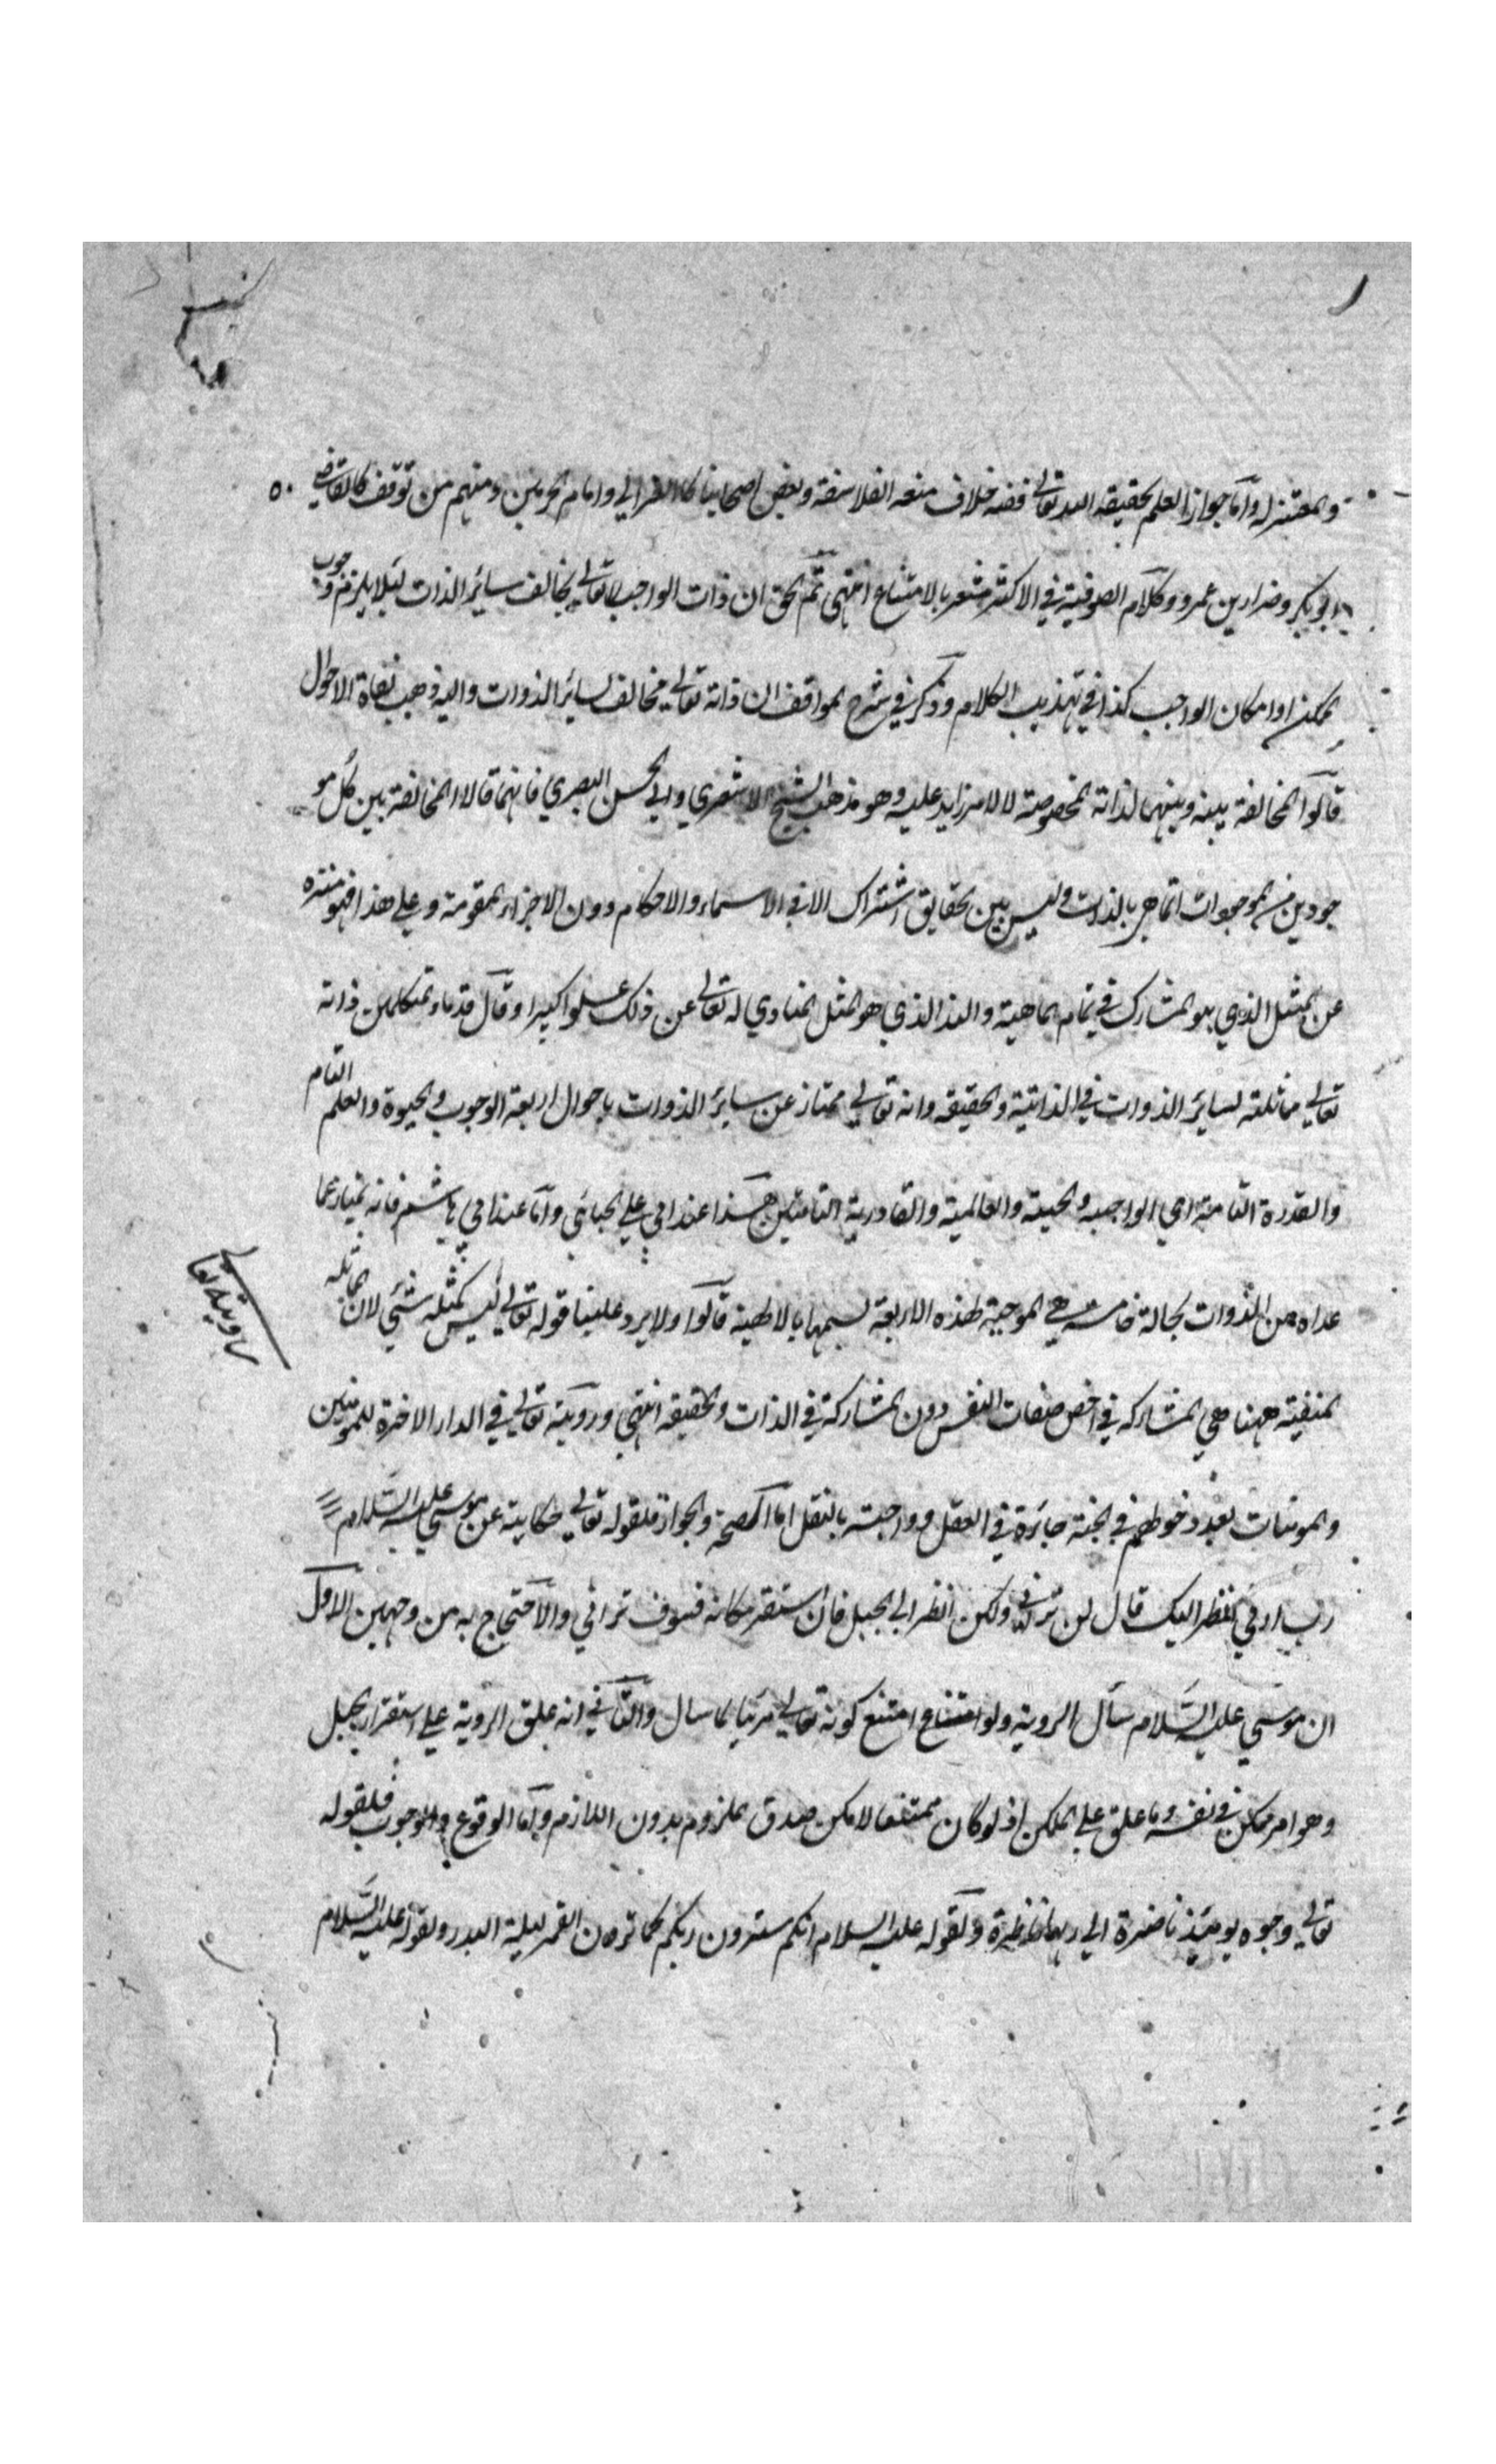 والمعتزلة واما جواز العلم بحقيقة الله تعالى ففيه خلاف منعه الفلاسفة وبعض اصحابنا كالغزالي وامام الحرمين ومنهم من توقف كالقاضي
ابو بكر وضرار بن عمرو وكلام الصوفية في الاكثر مشعر بالامتناع انتهى ثم الحق ان ذات الواجب تعالى يخالف ساير الذات لئلا يلزم وجوب
الممكن او امكان الواجب كذا في تهذيب الكلام وذكر في شرح المواقف ان ذاته تعالى مخالف لساير الذوات واليه ذهب نفاة الاحوال
قالوا المخالفة بينه وبينها لذاته المخصوصة لا لامر زايد عليه وهو مذهب الشيخ الاشعري وابي الحسن البصري فانهما قالا المخالفة بين كل مو
جودين من الموجودات انما هي بالذات وليس بين الحقايق اشتراك الا في الاسماء والاحكام دون الاجزاء المقومة وعلى هذا فهو منزه
عن المثل الذي هو المشارك في تمام الماهية والند الذي هو المثل المناوي له تعالى عن ذلك علوا كبيرا وقال قدماء المتكلمين ذاته
تعالى مماثلة لساير الذوات في الذاتية والحقيقة وانه تعالى ممتاز عن ساير الذوات باحوال اربعة الوجوب والحيوة والعلم التام
والقدرة التامة اي الواجبية والحيية والعالمية والقادرية التامتين هذا عند ابي علي الجبائي واما عند ابي هاشم فانه يمتاز عما
عداه من الذوات بحالة خامسة هي الموجبة لهذه الاربعة نسميها بالالهية قالوا ولا يرد علينا قوله تعالى ليس كمثله شئ لان المماثلة
رؤية تعالى
المنفية ههنا هي المشاركة في اخص صفات النفس دون المشاركة في الذات والحقيقة انتهى ورؤيته تعالى في الدار الاخرة للمؤمنين
والمومنات بعد دخولهم في الجنة جائزة في العقل وواجبته بالنقل اما الصحة والجواز فلقوله تعالى حكاية عن موسى عليه السلام
رب ارني انظر اليك قال لن تراني ولكن انظر الى الجبل فان استقر مكانه فسوف تراني والاحتجاج به من وجهين الاول
ان موسى عليه السلام سأل الروية ولو امتنع كونه تعالى مرئيا لما سال والثاني انه علق الروية على استقرار الجبل
وهو امر ممكن في نفسه وما علق على الممكن اذ لو كان ممتنعا لامكن صدق الملزوم بدون اللازم واما الوقوع والوجوب فلقوله
تعالى وجوه يومئذ ناضرة الى ربها ناظرة ولقوله عليه السلام انكم سترون ربكم كما ترون القمر ليلة البدر ولقوله عليه السلام